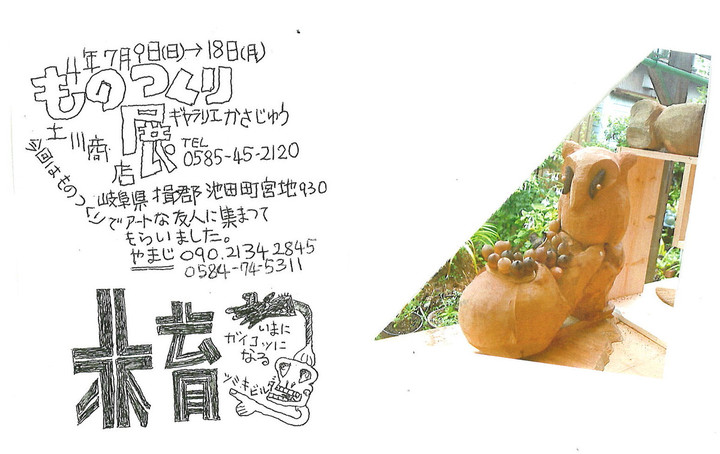 4年7月9日(日)→18日(月)
ものつくり
展
ギャラリエかさじゅう
土川商店
TEL
0585-45-2120
岐阜県揖斐郡池田町宮地930
今回はものつくりでアートな友人に集まつて
もらいました。
やまじ 090.2134.2845
0584-74-5311
いまに
ガイコツに
なる
ツミキビル